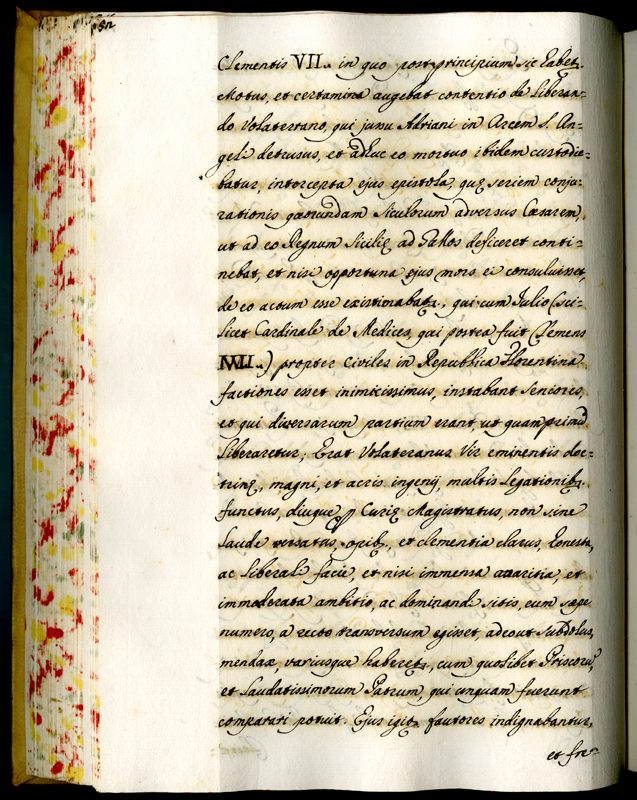 Clementis VII. in quo post principium sic habet.
Motus, et certamina augebat contentio de liberan=
do Volaterrano, qui jussu Adriani in Arcem S. An=
geli detrusus, et adhuc eo mortuo ibidem custodie=
batur, intercepta ejus epistola, quę seriem conju=
rationis quorundam Siculorum adversus Cæsarem,
ut ad eo Regnum Sicilię ad Gallos deficeret conti=
nebat, et nisi opportuna ejus mors ei consuluisset,
de eo actum esse existimabat., qui cum Julio (sci=
licet Cardinale de Medices, qui postea fuit Clemens
VII.) propter Civiles in Republica Florentina
factiones esset inimicissimus, instabant seniores,
et qui diversarum partium erant, ut quam primũ
liberaretur; Erat Volateranus Vir eminentis doc=
trinę, magni, et acris ingenij, multis legationib.
functus, diuque Curię Magistratus, non sine
laude versatus, opib., et clementia clarus, honesta,
ac liberali facie, et nisi immensa avaritia, et
immoderata ambitio, ac dominandi sitis, eum sæpe
numero, a recto transversum egisset, adeout subdolus,
mendax, variusque haberet., cum quolibet Priscorũ,
et laudatissimorum Patrum qui unquam fuerunt
comparari potuit. Ejus igit. fautores indignabantur,
et fre=